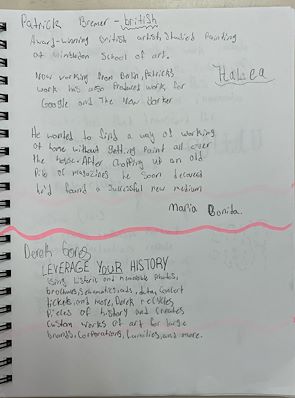 Patrick Bremer - british
Award-winning British artist, Studied Painting
at Wimbledon School of art.
Now working from Berlin, Patrick's
work has also Produced work for
Google and The New Yorker
He wanted to find a way of working
at home without getting Paint all over
the house. After chopping up an old
Pile of magazines he Soon
he'd found a successful new medium
Maria Bonita.
Derek Gores
LEVERAGE YOUR HISTORY
Using historic and memorable photos,
brochures, Schematics, ads, data, concert
tickets, and more, Derek recycles
Pieces of history and creates
custom works of art for large
brands, Corporations, families, and more.